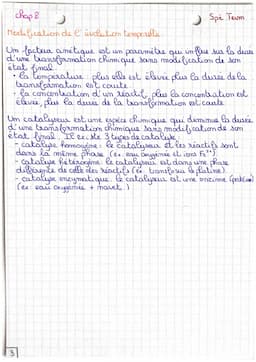 chap 8
Spé Term
Modification de l'évolution temporelle
Un facteur cinétique est un paramètre qui influe sur la durée
d'une transformation chimique sans modification de son
état final.
• la température : plus elle est élevée plus la durée de la
transformation est courte
• la concentration d'un réactif, plus la concentration est
élevée, plus la durée de la transformation est courte.
Un catalyseur est une espèce chimique qui diminue la durée
d'une transformation chimique sans modification de son
état final. Il existe 3 types de catalyse :
- catalyse homogène : le catalyseur et les réactifs sont
dans la même phase (ex : eau oxygénée et ions Fe³⁺).
- catalyse hétérogène : le catalyseur est dans une phase
différente de celle des réactifs (ex : platine).
- catalyse enzymatique : le catalyseur est une enzyme
(ex : eau oxygénée + navet)
3